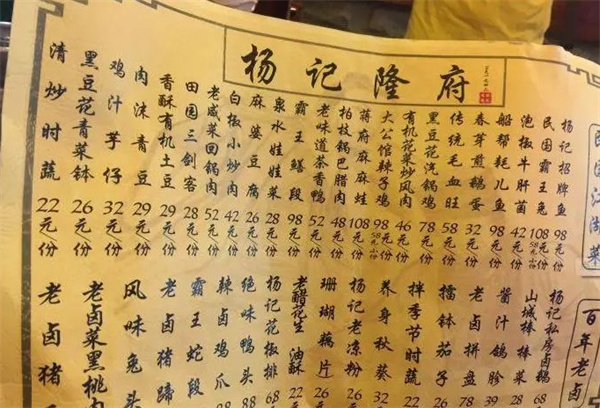 杨记隆府
民国江湖菜
杨记招牌鱼 98元/份
民国霸王兔 108元/份 58元/小份
泡椒牛肝菌 42元/份
船帮耗儿鱼 98元/份
春芽煎鹅蛋 32元/份
传统毛血旺 58元/份
黑豆花汽锅鸡 78元/份
有机花菜炒风肉 46元/份
大公馆辣子鸡 58元/小份
蒋府麻麻蛙 108元/份
拍枝锅巴腊肉 48元/份
老味道茶香鸭 52元/份
霸王鳝段 98元/份
泉水娃娃菜 28元/份
麻婆豆腐 26元/份
白椒小炒肉 42元/份
老咸菜回锅肉 52元/份
田园三剑客 28元/份
香酥有机土豆 29元/份
肉沫青豆 29元/份
鸡汁芋仔 32元/份
黑豆花青菜钵 26元/份
清炒时蔬 22元/份
百年老卤
杨记私房卤鹅 68
山城棒棒菜
酱汁鸽胗
老卤拼盘 78
擂钵茄子 26
拌季节时蔬 22
养身秋葵 32
杨记老凉粉
珊瑚藕片
老醋花生油酥
杨记花椒排 68
绝味鸭头
辣卤鸡爪
霸王蛇段
老卤猪蹄
风味兔头
老卤菜黑桃肉
老卤猪